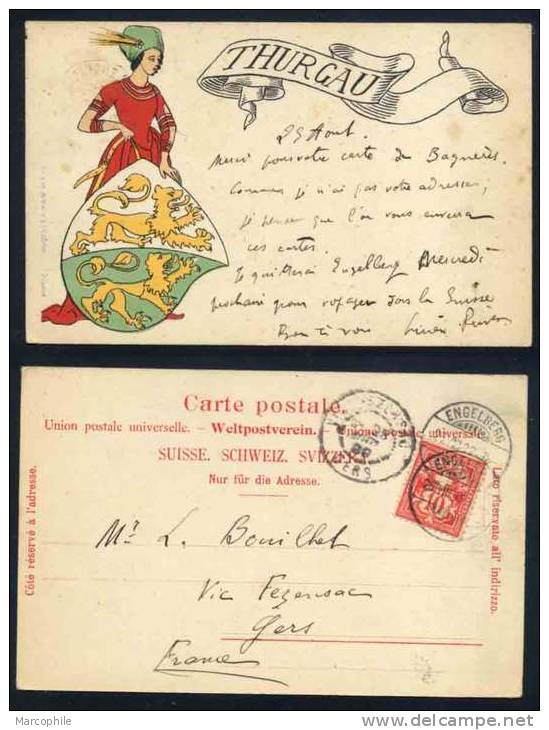 THURGAU
29 Aout.
Merci pour votre carte de Bagnères.
Comme je n'ai pas votre adresse,
je pense que l'on vous enverra
ces cartes.
Je quitterai Engelberg Mercredi
prochain pour voyager dans la Suisse
Bien à vous
Carte postale.
Union postale universelle. – Weltpostverein. – Unione postale universale.
SUISSE. SCHWEIZ. SVIZZERA.
Nur für die Adresse.
Côté réservé à l'adresse.
Lato riservato all' indirizzo.
VIC-FEZENSAC
GERS
ENGELBERG
10
Mr. L. Bouilhet
Vic Fezensac
Gers
France
Marcophile
http://www.delcampe.net